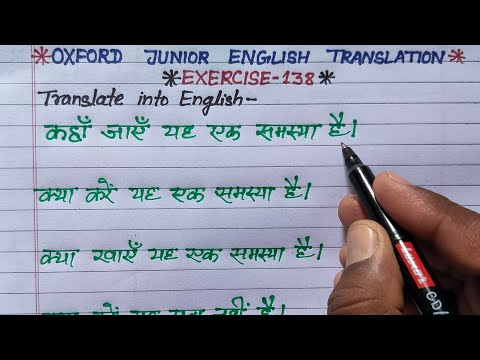 *OXFORD JUNIOR ENGLISH TRANSLATION*
*EXERCISE-138*
Translate into English-
कहाँ जाएँ यह एक समस्या है।
क्या करें यह एक समस्या है।
क्या खाएँ यह एक समस्या है।
है।